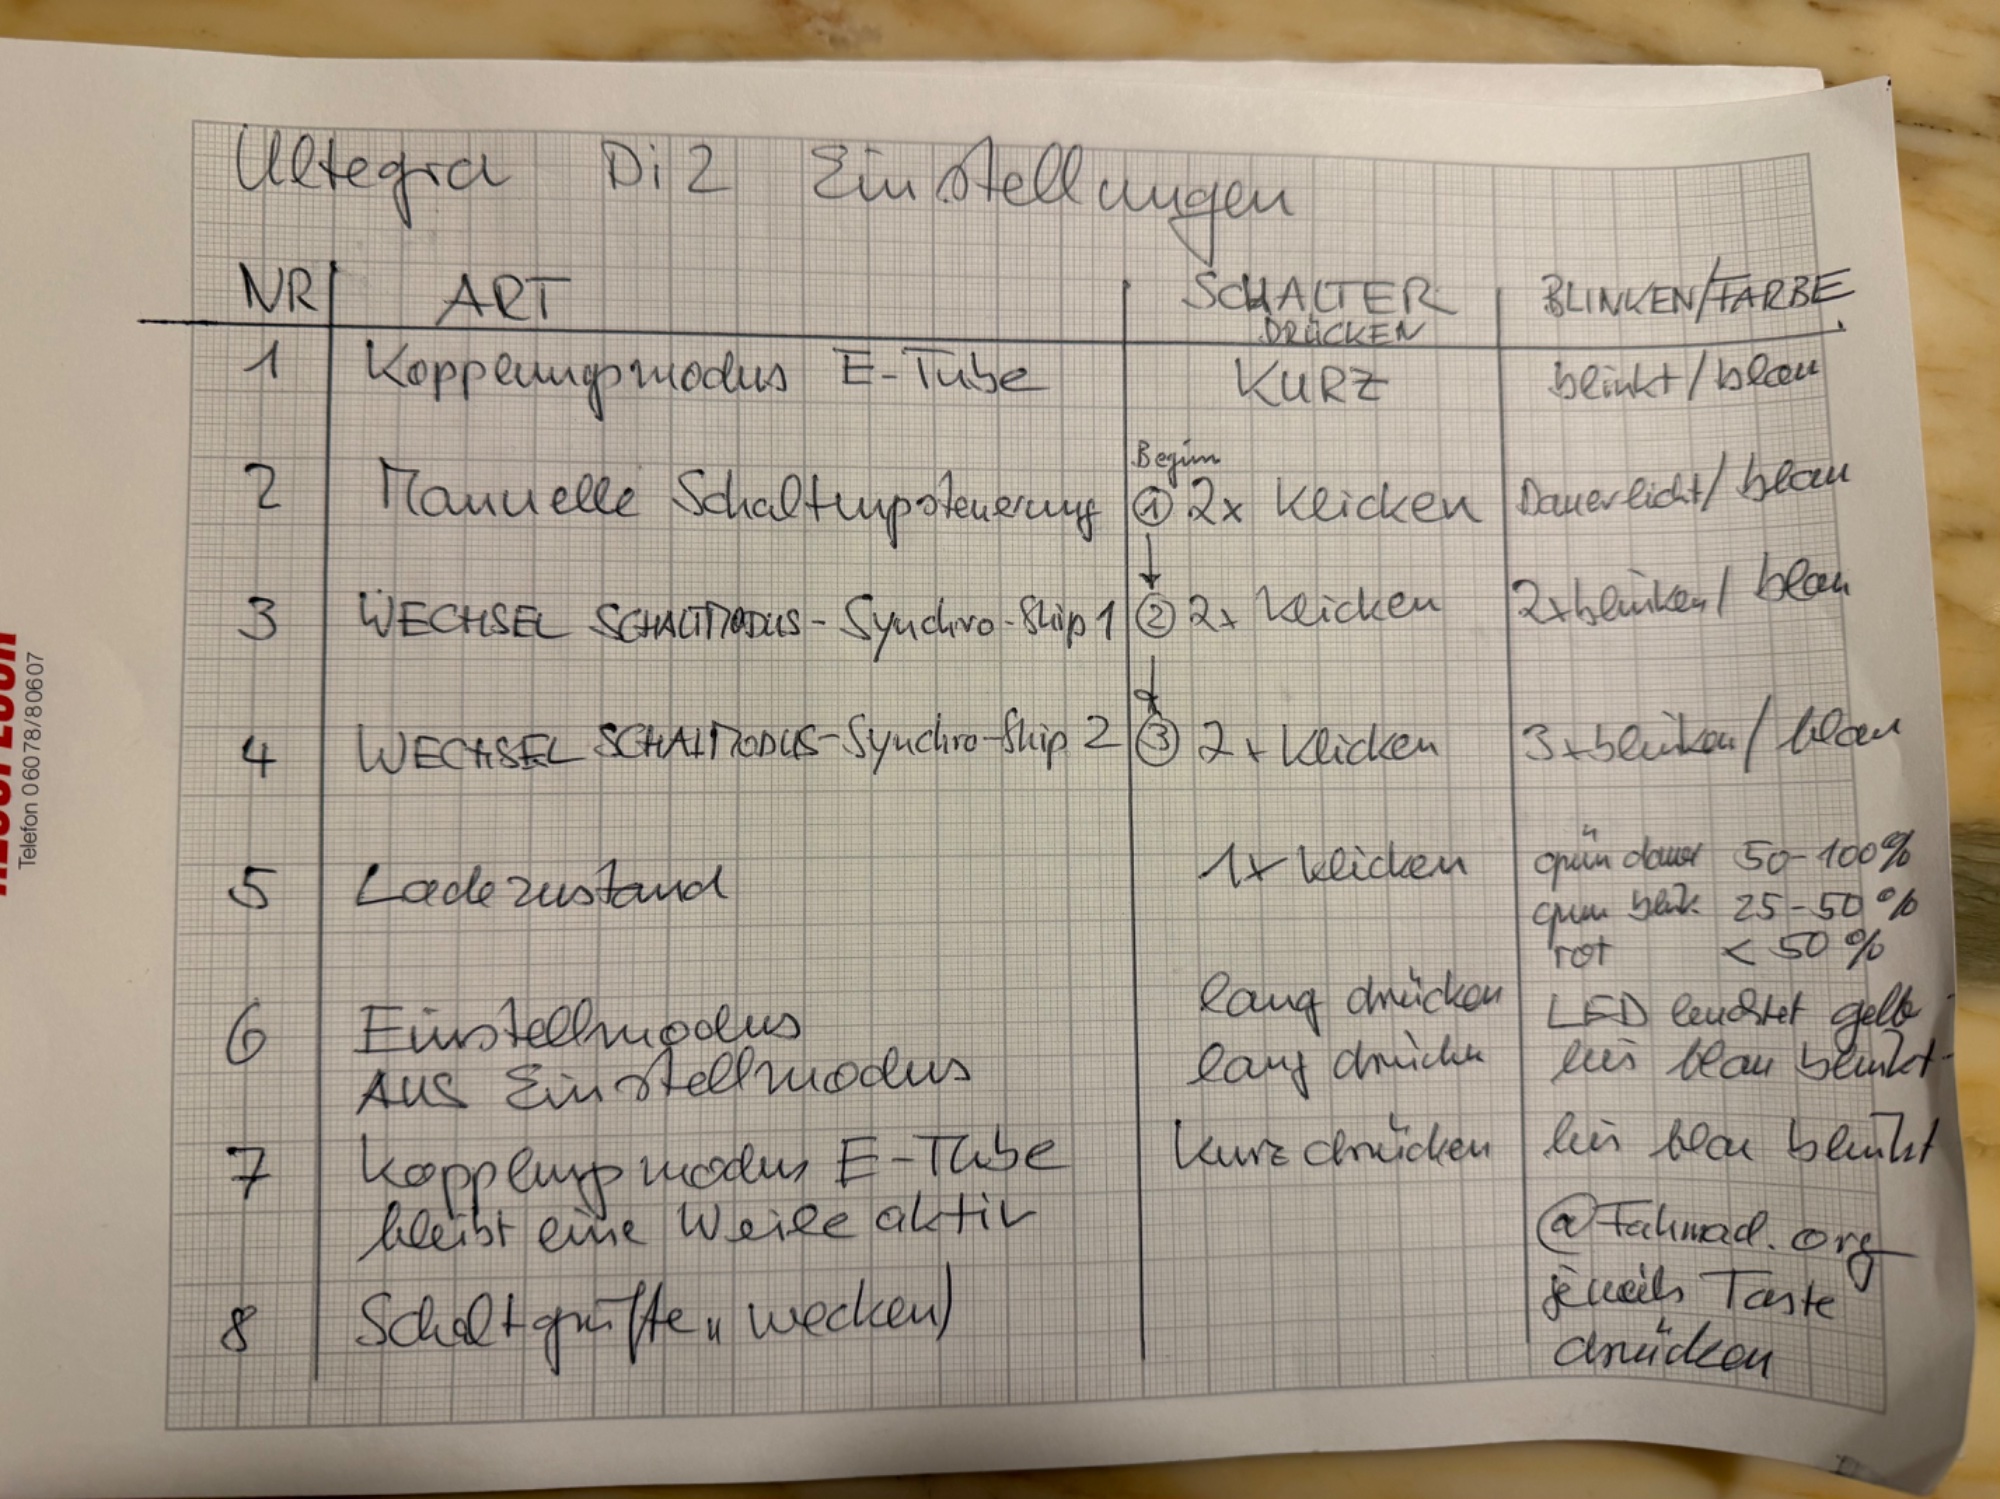 Ultegra Di2 Einstellungen
NR ART SCHALTER DRÜCKEN BLINKEN/FARBE
1 Kopplungsmodus E-Tube KURZ blinkt/blau
Beginn
2 Manuelle Schaltungssteuerung ① 2x Klicken Dauerlicht/blau
3 WECHSEL SCHALTMODUS-Synchro-Ship 1 ② 2x Klicken 2xblinken/blau
4 WECHSEL SCHALTMODUS-Synchro-Ship 2 ③ 2x Klicken 3xblinken/blau
5 Ladezustand 1x klicken grün dauer 50-100%
grün blink. 25-50%
rot < 50%
6 Einstellmodus lang drücken LED leuchtet gelb
AUS Einstellmodus lang drücken bis blau blinkt
7 Kopplungsmodus E-Tube kurz drücken bis blau blinkt
bleibt eine Weile aktiv
@Fahrrad.org
8 Schaltgriffe „wecken) jeweils Taste
drücken
Telefon 06078/80607